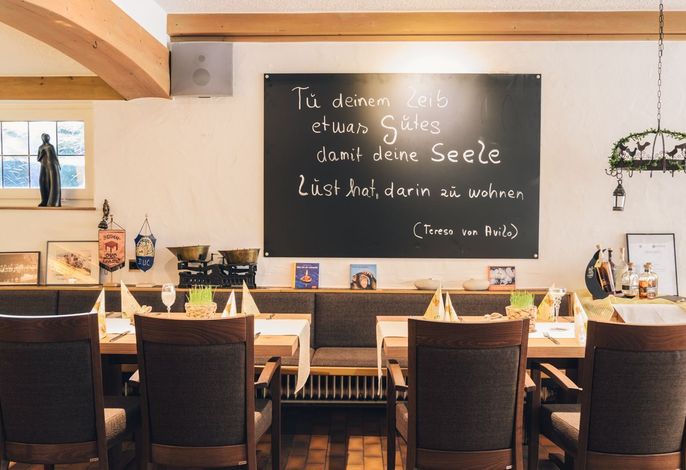 Tŭ deinem Leib
etwas Gŭtes
damit deine Seele
Lŭst hat, darin zŭ wohnen
(Tereso von Avilo)